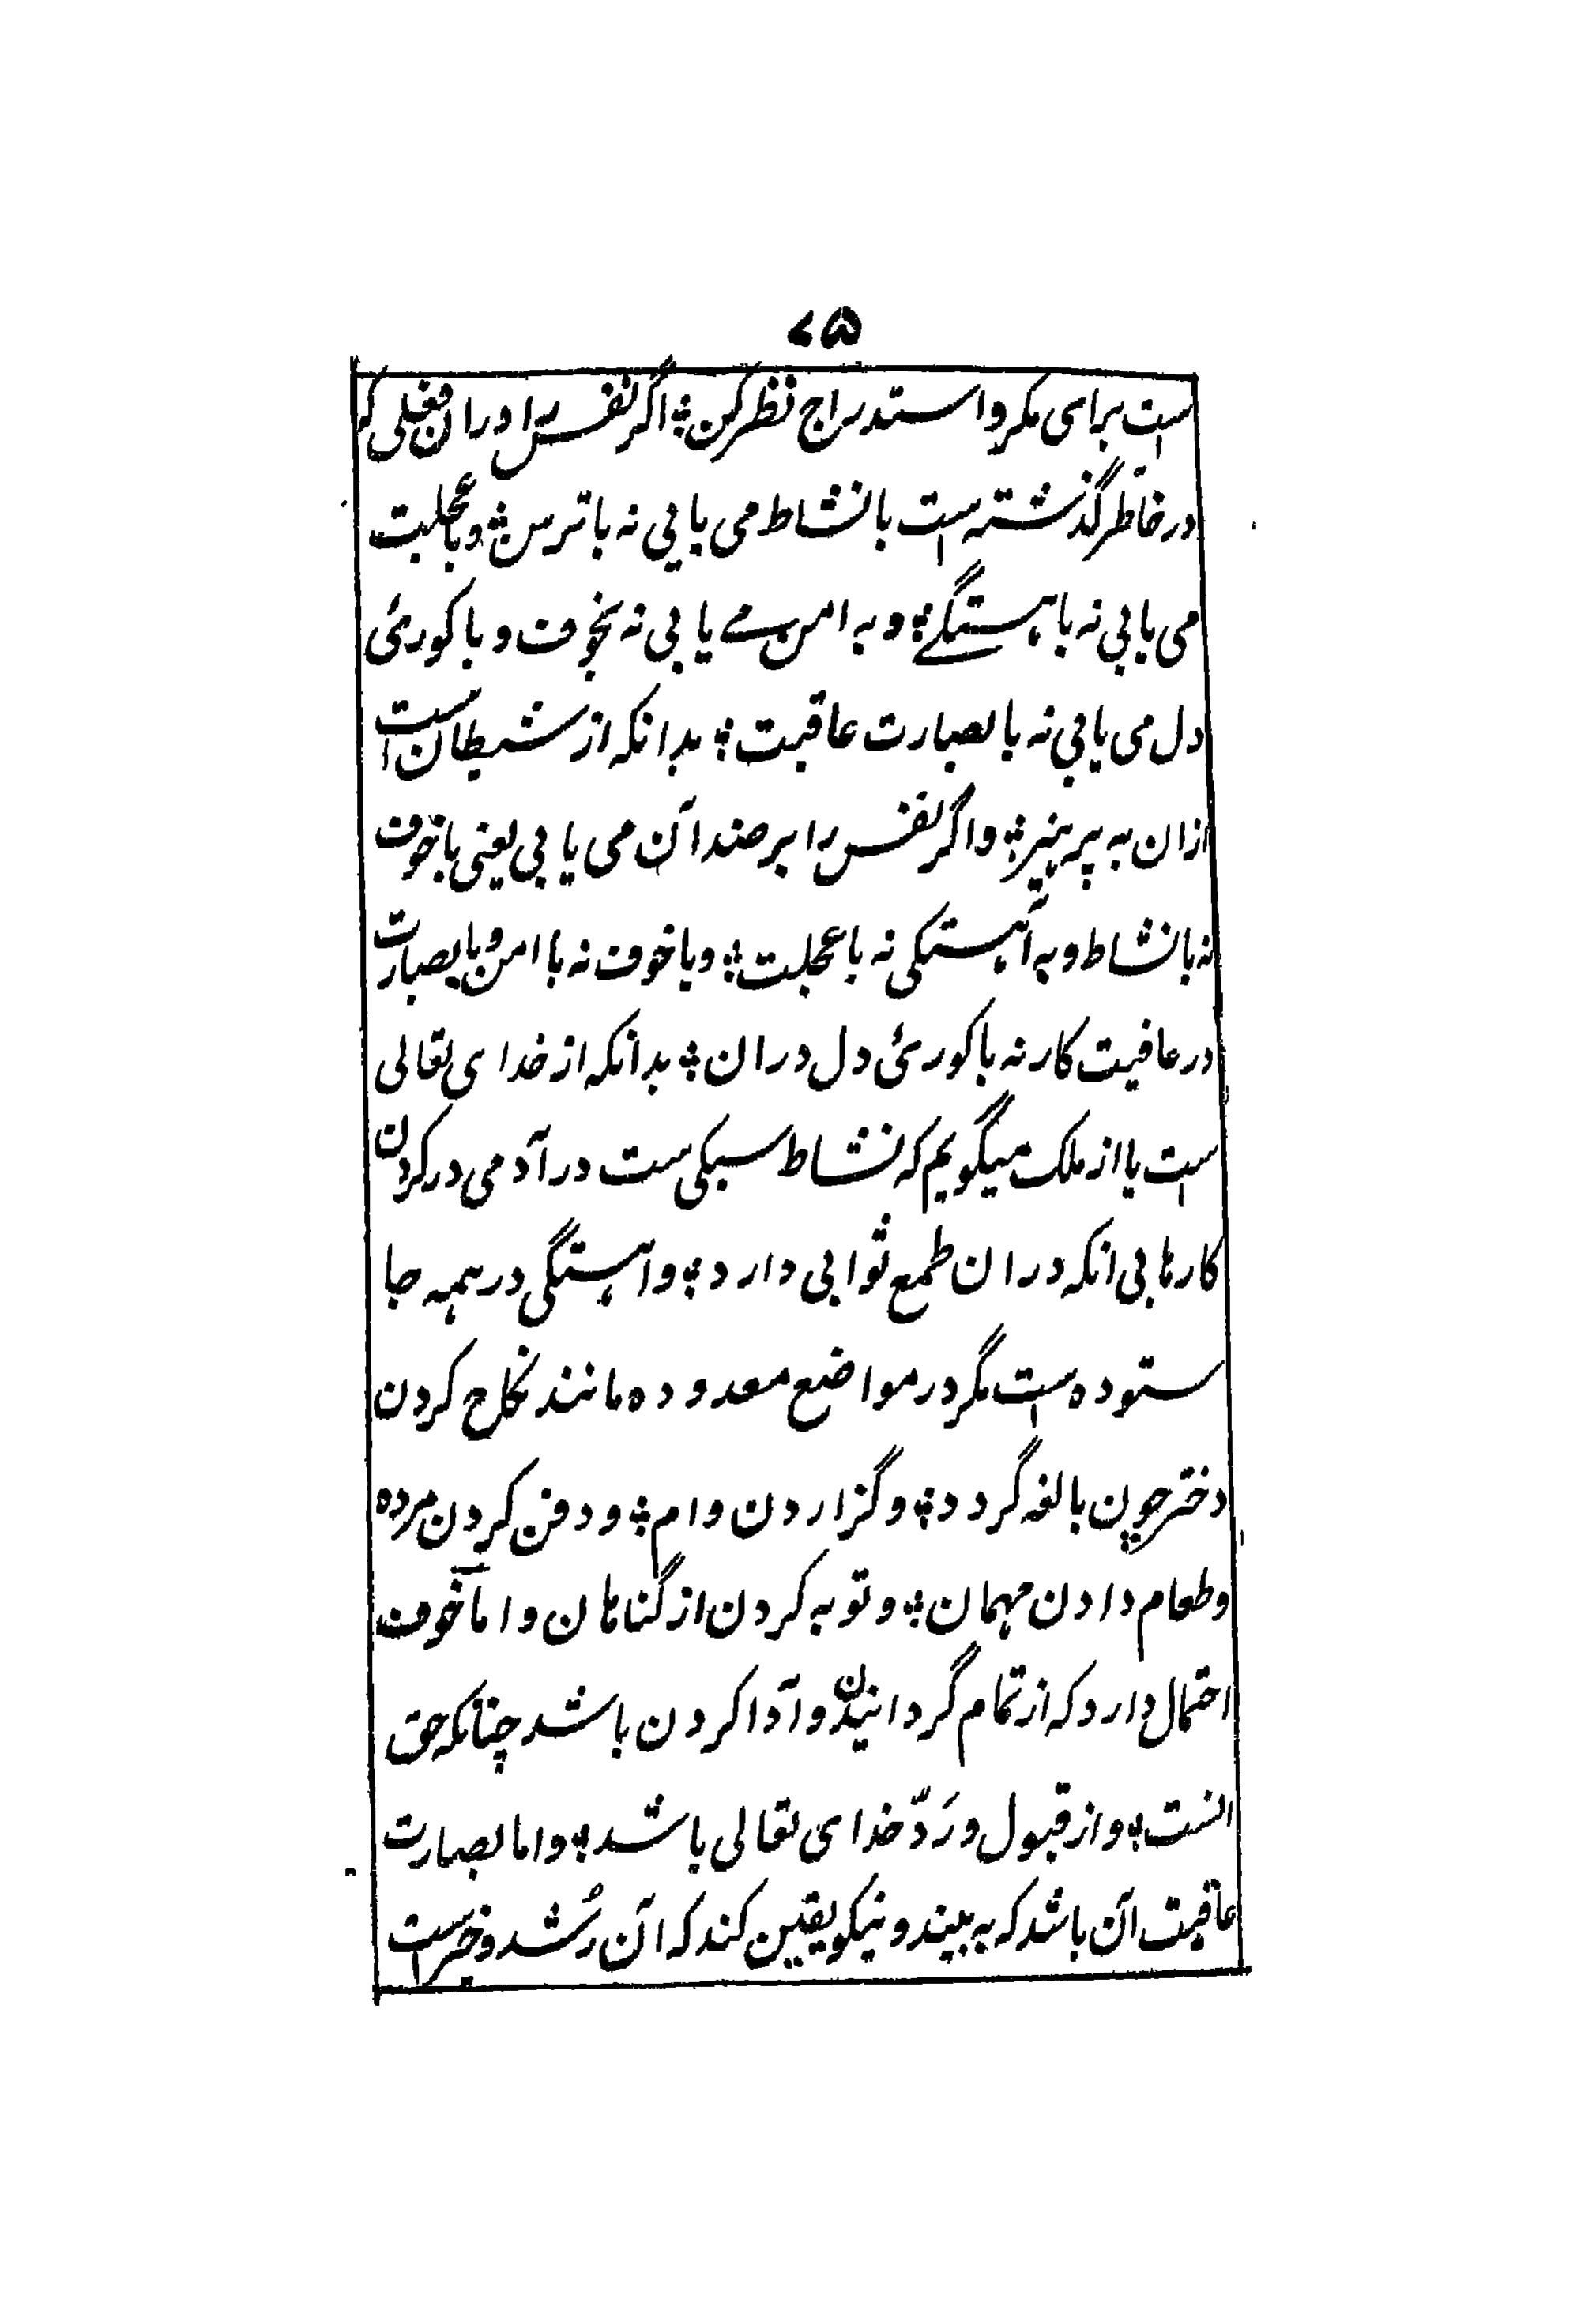 ۷۵
است برای مکر و استدراج نظر کن ؛ اگر نفس را در ان فعلی که
در خاطر گذشته است با نشاط می یابی نه با ترس ؛ و با عجلت
می یابی نه با ہستگے ؛ و به امن مے یابی نه بخوف و با کورئ
دل می یابی نه با بصارت عاقبت ؛ بدانکه از شیطان است
ازان به پرہیز ؛ و اگر نفس را بر ضد آن می یابی یعنی با خوف
نه با نشاط و به آہستگی نه با عجلت ؛ و با خوف نه با امن و با بصارت
در عاقبت کار نه با کورئ دل دران ؛ بدانکه از خدای تعالی
است یا از ملک میگویم که نشاط سبکی ست در آدمی در کردن
کارها بی انکه دران طمع ثوابی دارد ؛ و اہستگی در ہمه جا
ستوده است مگر در مواضع معدوده مانند نکاح کردن
دختر چون بالغه گردد ؛ و گزاردن وام ؛ و دفن کردن مرده
و طعام دادن مہمان ؛ و توبه کردن از گناهان و اما خوف
احتمال دارد که از تمام گردانیدن و آدا کردن باشد چنانکه حق
انست ؛ و از قبول و رَدّ خدای تعالی باشد ؛ و اما بصارت
عاقبت آن باشد که به بیند و نیکو یقین کند که آن رُشد و خیر است